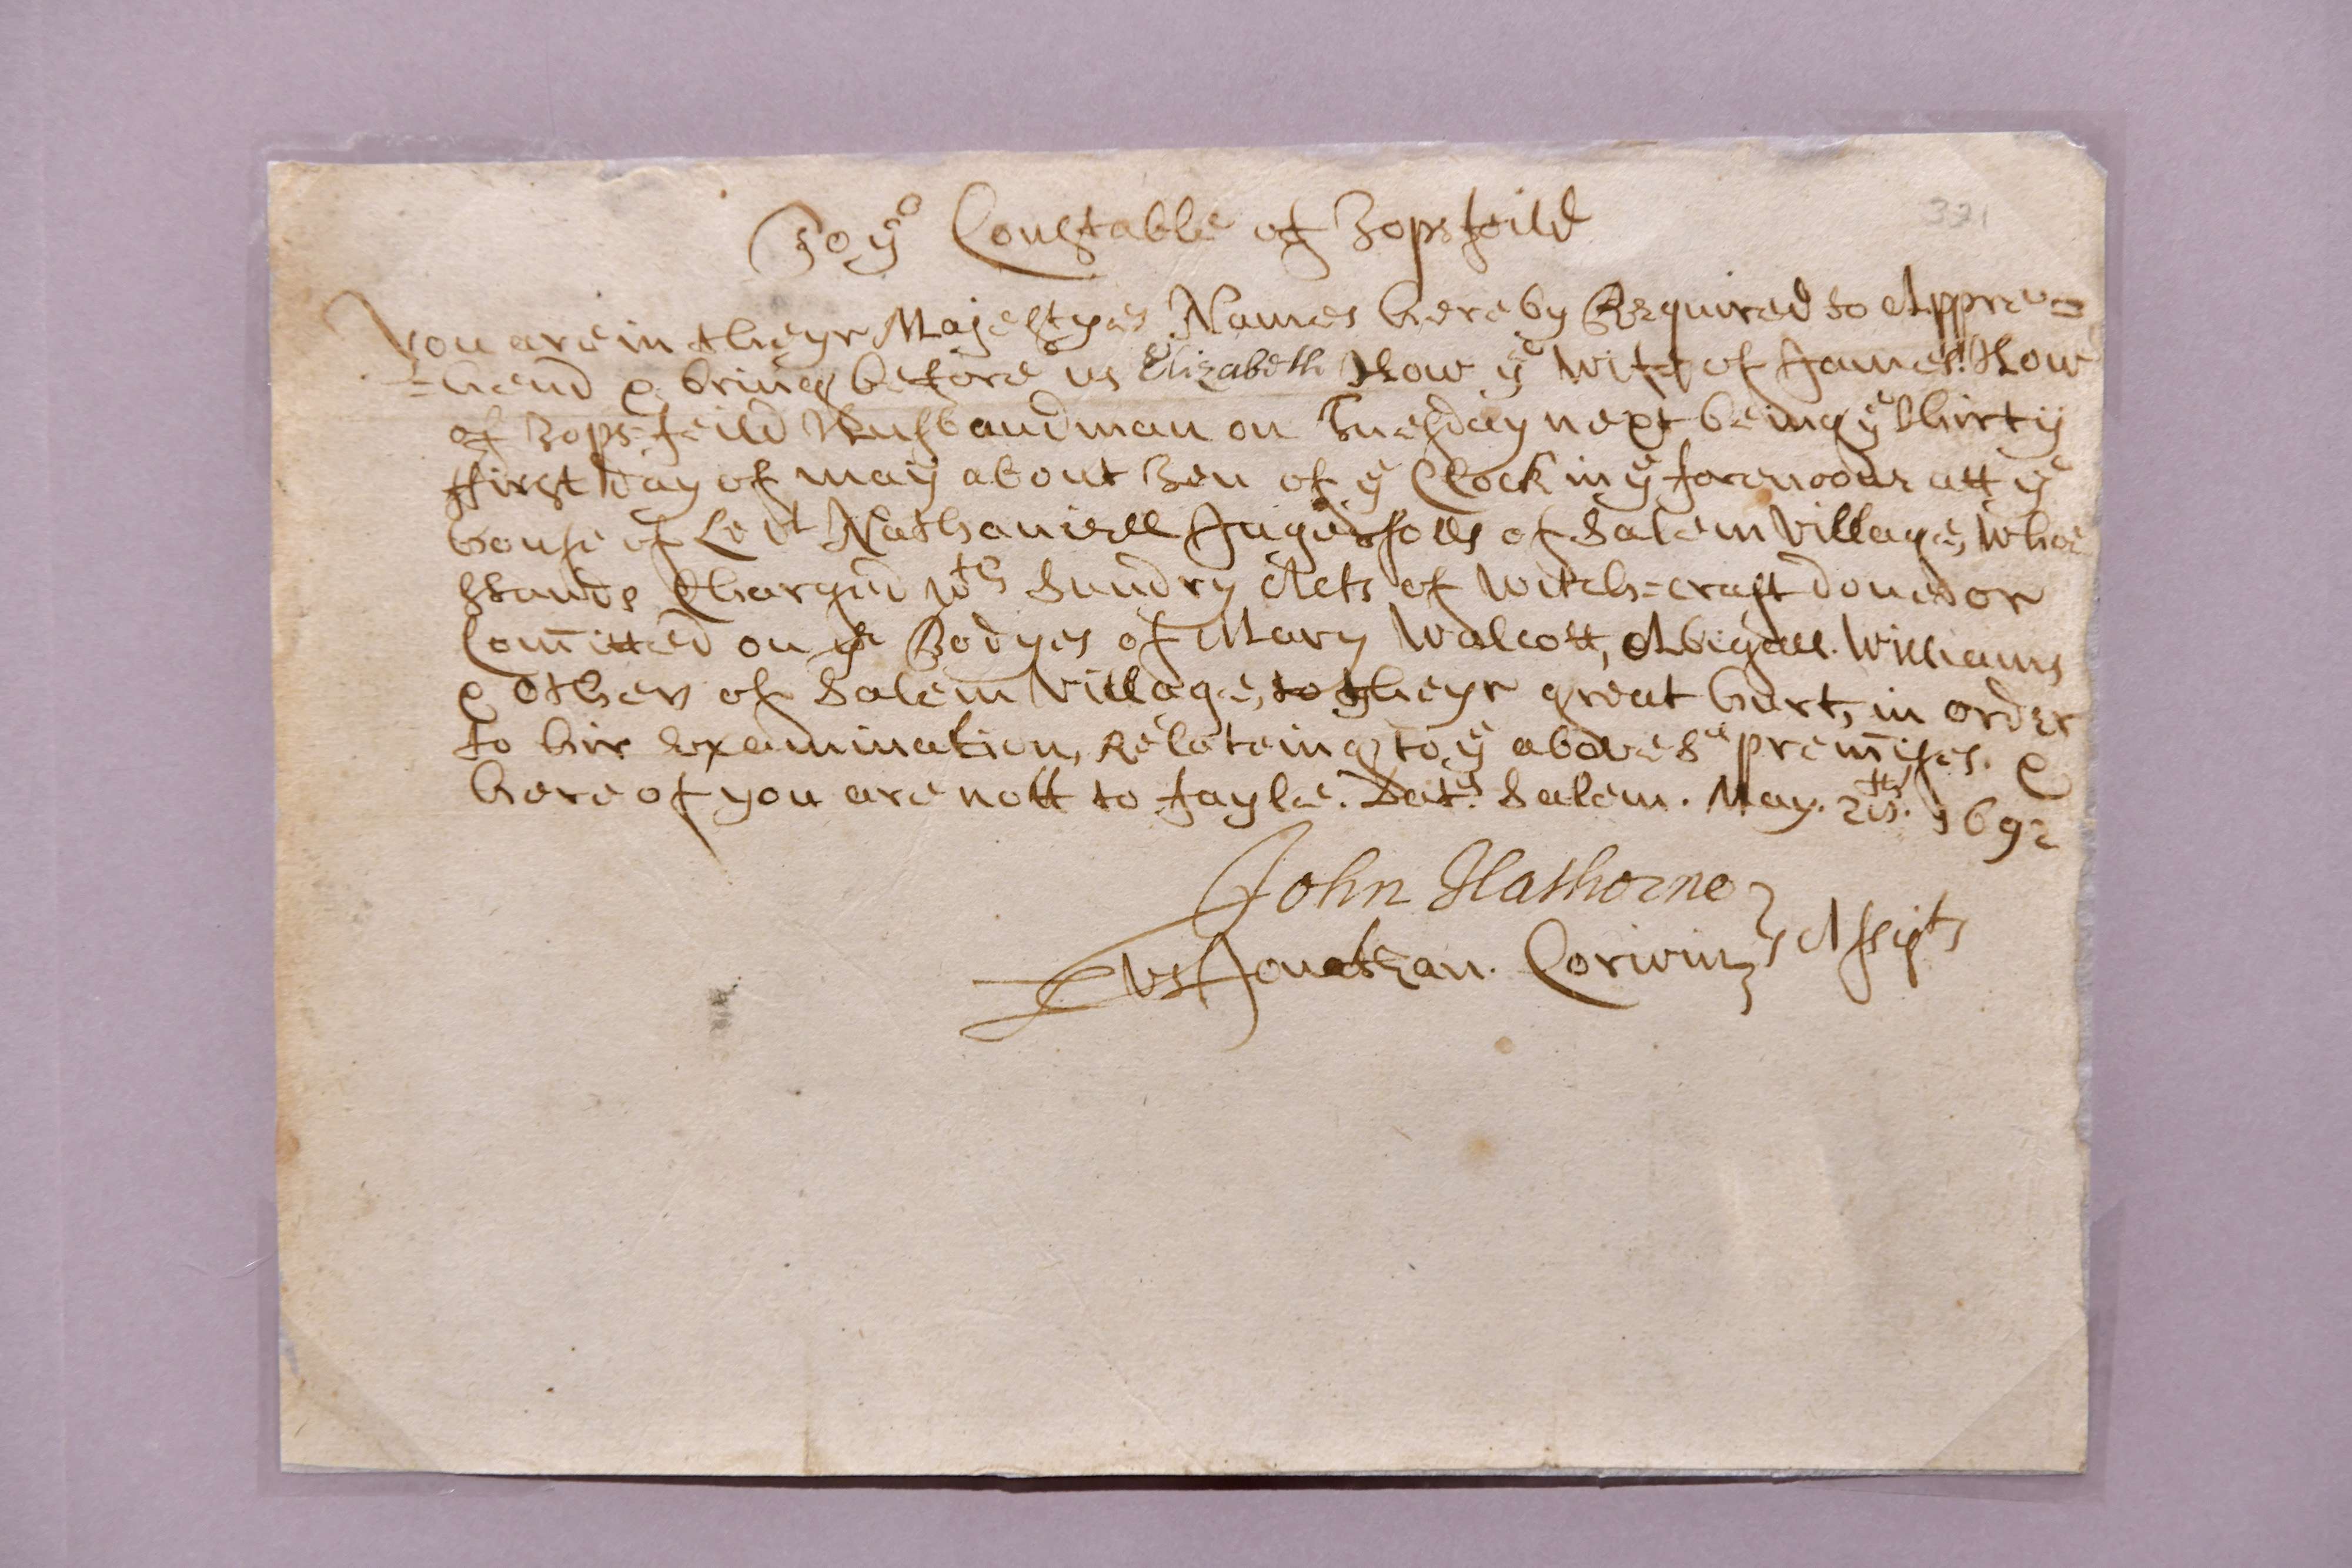 To yᵉ Constable of Topsfeild
321
You are in theyr Majestyes Names hereby Required to Appre=
=hend & bring before us Elizabeth How yᵉ wife of James How
of Topsfeild Husbandman on Tuesday next being yᵉ thirty
ffirst day of may about Ten of yᵉ Clock in yᵉ forenoone att yᵉ
house of Levt Nathaniell Ingersolls of Salem Village, Whoe
stands Charged wᵗʰ Sundry Acts of Witch=craft done or
Com̄itted on yᵉ Bodyes of Mary Walcott, Abigall Williams
& others of Salem Village, to theyr great hurt, in order
to hir Examination, Relateing to yᵉ aboveSᵈ prem̄ises. &
hereof you are nott to fayle. Datᵈ. Salem. May. 1692
John Hathorne
us Jonathan. Corwin Assists